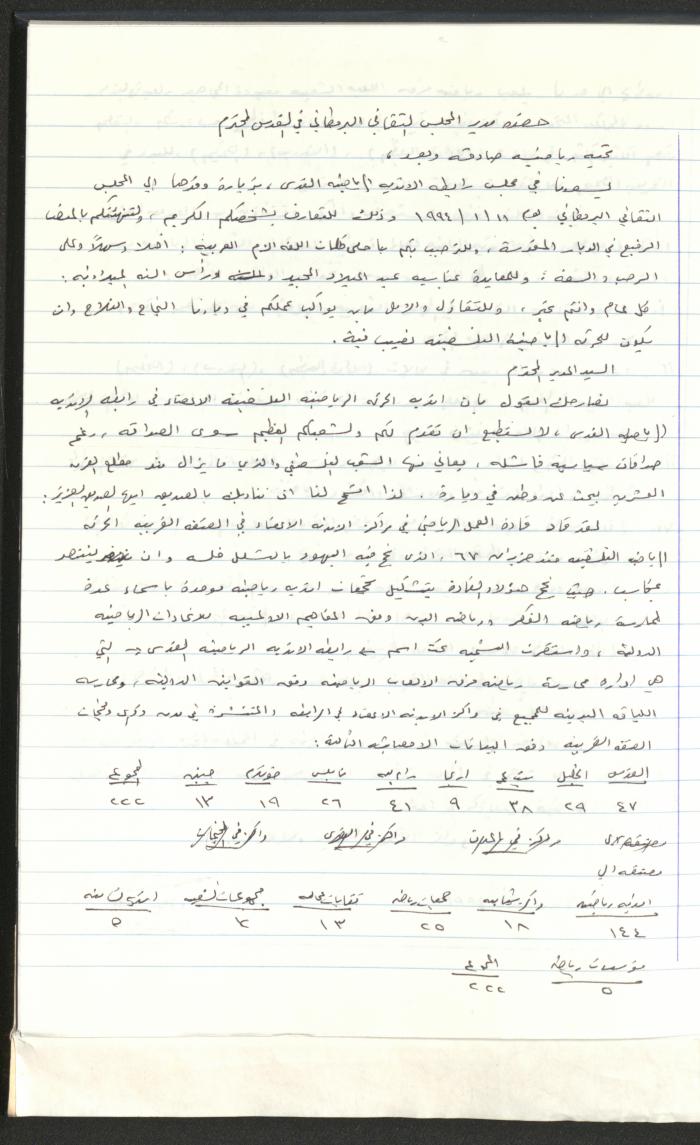 حضرة مدير المجلس الثقافي البريطاني في القدس المحترم
تحية رياضية صادقة وبعد،
يسعدنا في مجلس رابطة الاندية الرياضية القدس، بزيارة وفدها الى المجلس
الثقافي البريطاني يوم ١١/١/١٩٩٤ وذلك للتعارف بشخصكم الكريم، ولتهنئتكم بالمنصب
الرفيع في الديار المقدسة، وللترحيب بكم باحلى كلمات اللغة الام العربية: أهلا وسهلا وعلى
الرحب والسعة؛ وللمعايدة بمناسبة عيد الميلاد المجيد ورأس السنة الميلادية:
كل عام وانتم بخير، وللتفاؤل والامل بان يواكب عملكم في ديارنا النجاح والفلاح وان
يكون للحركة الرياضية الفلسطينية نصيب فيه.
السيد المدير المحترم
نصارحك القول بان اندية الحركة الرياضية الفلسطينية الاعضاء في رابطة الاندية
الرياضية القدس، لا تستطيع ان تقدم لكم ولشعبكم العظيم سوى الصداقة، رغم
صداقات سياسية فاشلة، يعاني منها الشعب الفلسطيني والذي ما يزال منذ مطلع القرن
العشرين يبحث عن وطن في دياره. لذا اسمح لنا ان نناديك بالصديق ايها الصديق العزيز:
لقد قاد قادة العمل الرياضي في مراكز الاندية الاعضاء في الضفة الغربية الحركة
الرياضية الفلسطينية منذ حزيران ٦٧، الذي نجح فيه اليهود بالتسلل خلسه وان ينتصر
بمكاسب. حيث نجح هؤلاء القادة بتشكيل تجمعات اندية رياضية موحدة باسماء عدة
لممارسة رياضة الفكر ورياضة البدن وفق المفاهيم الاولمبية للاتحادات الرياضية
الدولية، واستقرت التسمية تحت اسم رابطة الاندية الرياضية القدس التي
هي ادارة ممارسة رياضة فرق الالعاب الرياضية وفق القوانين الدولية، وممارسة
اللياقة البدنية للجميع في مراكز الاندية الاعضاء في الرابطة والمنتشرة في مدن وقرى ومخيمات
الضفة الغربية وفق البيانات الاحصائية التالية:
القدس الخليل بيت لحم اريحا رام الله نابلس طولكرم جنين المجموع
٤٧ ٢٩ ٣٨ ٩ ٤١ ٢٦ ١٩ ١٣ ٢٢٢
مراكز في المدن مراكز في القرى مراكز في المخيمات
مصنفة الى
اندية رياضية مراكز شبابية جمعيات رياضية نقابات عمالية مجموعات كشفية
١٤٤ ١٨ ٢٥ ١٣ ٥
مؤسسات رياضية المجموع
٥ ٢٢٢